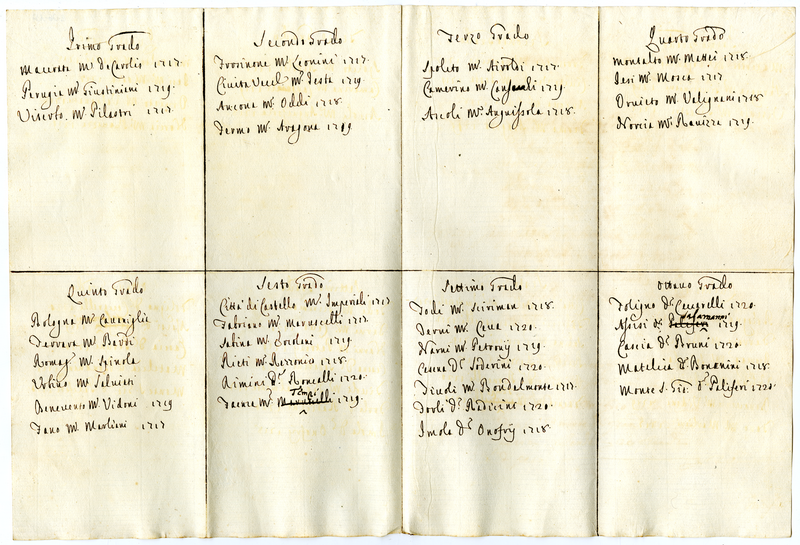 Primo Grado
Macerata Mr. de Carolis 1717.
Perugia Mr. Giustiniani 1719.
Viterbo. Mr. Pilastri 1717.
Secondo Grado
Frosinone Mr. Leonini 1717.
Civita Vecch. Mr. Testa 1719.
Ancona Mr. Oddi 1718.
Fermo Mr. Aragona 1719.
Terzo Grado
Spoleto Mr. Airoldi 1717.
Camerino Mr. 1719.
Ascoli Mr. Anguissola 1718.
Quarto Grado
Montalto Mr. Mattei 1718.
Iesi Mr. Mosca 1717
Orvieto Mr. Valignani 1718
Norcia Mr. Ravizza 1719.
Quinto Grado
Bologna Mr.
Ferrara Mr. Bardi
Romag. Mr. Spinola
Urbino Mr. Salviati
Benevento Mr. Vidoni 1719
Fano Mr. Marliani 1717
Sesto Grado
Città di Castello Mr. Imperiali 1717
Fabriano Mr. Maruscelli 1717.
Sabina Mr. Ercolani 1719.
Rieti Mr. 1718.
Rimini Dr. Roncalli 1720.
Tempi
Faenza Mr. 1719.
Settimo Grado
Todi Mr. Sciriman 1718.
Terni Mr. Ceva 1720.
Narni Mr. Petronij 1719.
Cesena Dr. Soderini 1720.
Tivoli Mr. Bondelmonte 1717.
Forlì Dr. 1720.
Imola Dr. Onofrij 1718
Ottavo Grado
Foligno Dr. Cenerelli 1720.
Salamanni
Assisi Dr. 1719.
Cascia Dr. Bruni 1720.
Matelica Dr. Bonanini 1718.
Monte S. Gio: Dr. Paliferi 1720